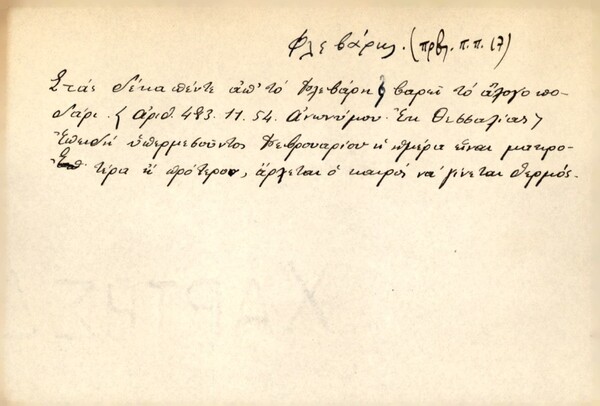 Φλεβάρης. (πρβλ. π.π. 17)
Στάς δέκα πέντε ἀπ' τό Φλεβάρη βαρεῖ τό ἄλογο πο-
δάρι. < Ἀριθ. 483. 11. 54. Ἀνωνύμου. Ἐκ Θεσσαλίας >
Ἐπειδή ὑπερμεσοῦντος Φεβρουαρίου ἡ ἡμέρα εἶναι μακρο-
τέρα ἤ πρότερον, ἄρχεται ὁ καιρός νά γίνεται θερμός.